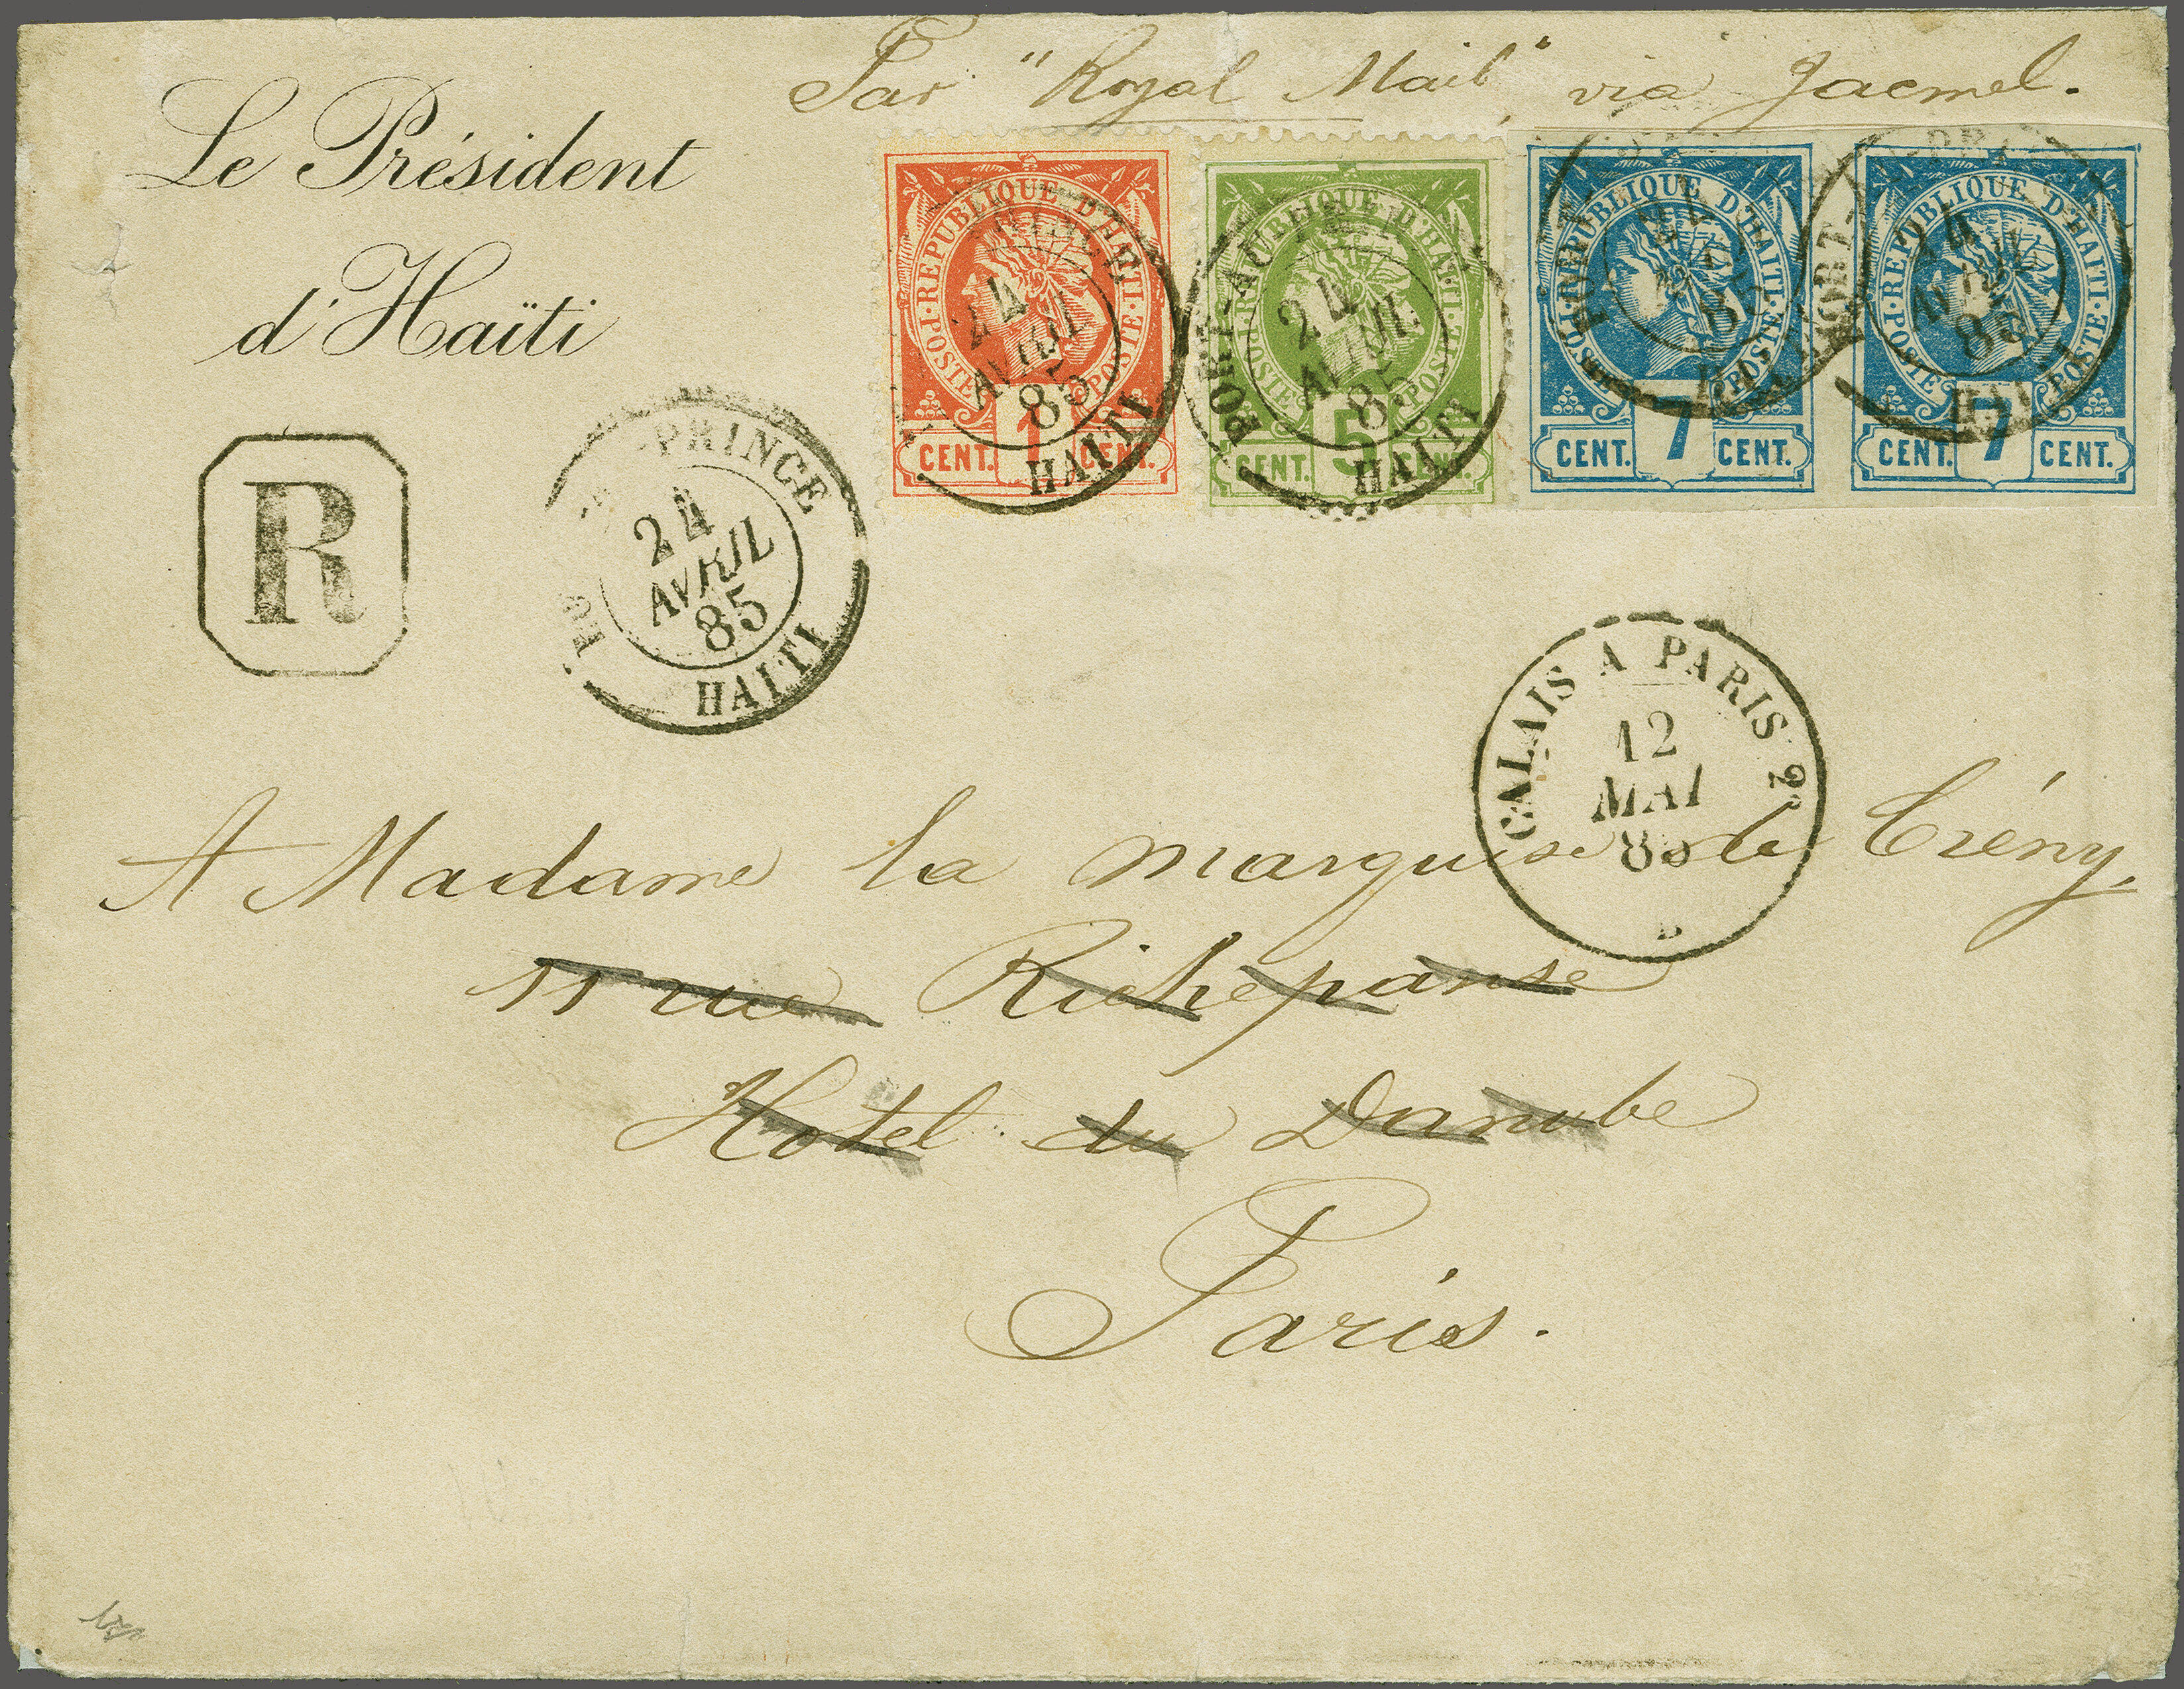 Par "Royal Mail" via Jacmel.
Le Président
d'Haïti
POSTE · REPUBLIQUE D'HAITI · POSTE
CENT. 1 CENT.
24
AVRIL
85
HAITI
POSTE · REPUBLIQUE D'HAITI · POSTE
CENT. 5 CENT.
PORT-AU
24
AVRIL
85
HAITI
POSTE · REPUBLIQUE D'HAITI · POSTE
CENT. 7 CENT.
POSTE · REPUBLIQUE D'HAITI · POSTE
CENT. 7 CENT.
PORT
24
AVRIL
85
HAITI
R
PRINCE
24
AVRIL
85
HAITI
CALAIS A PARIS 2º
12
MAI
85
A Madame la marquise de Crény,
11 rue Richepanse
Hotel du Danube
Paris.